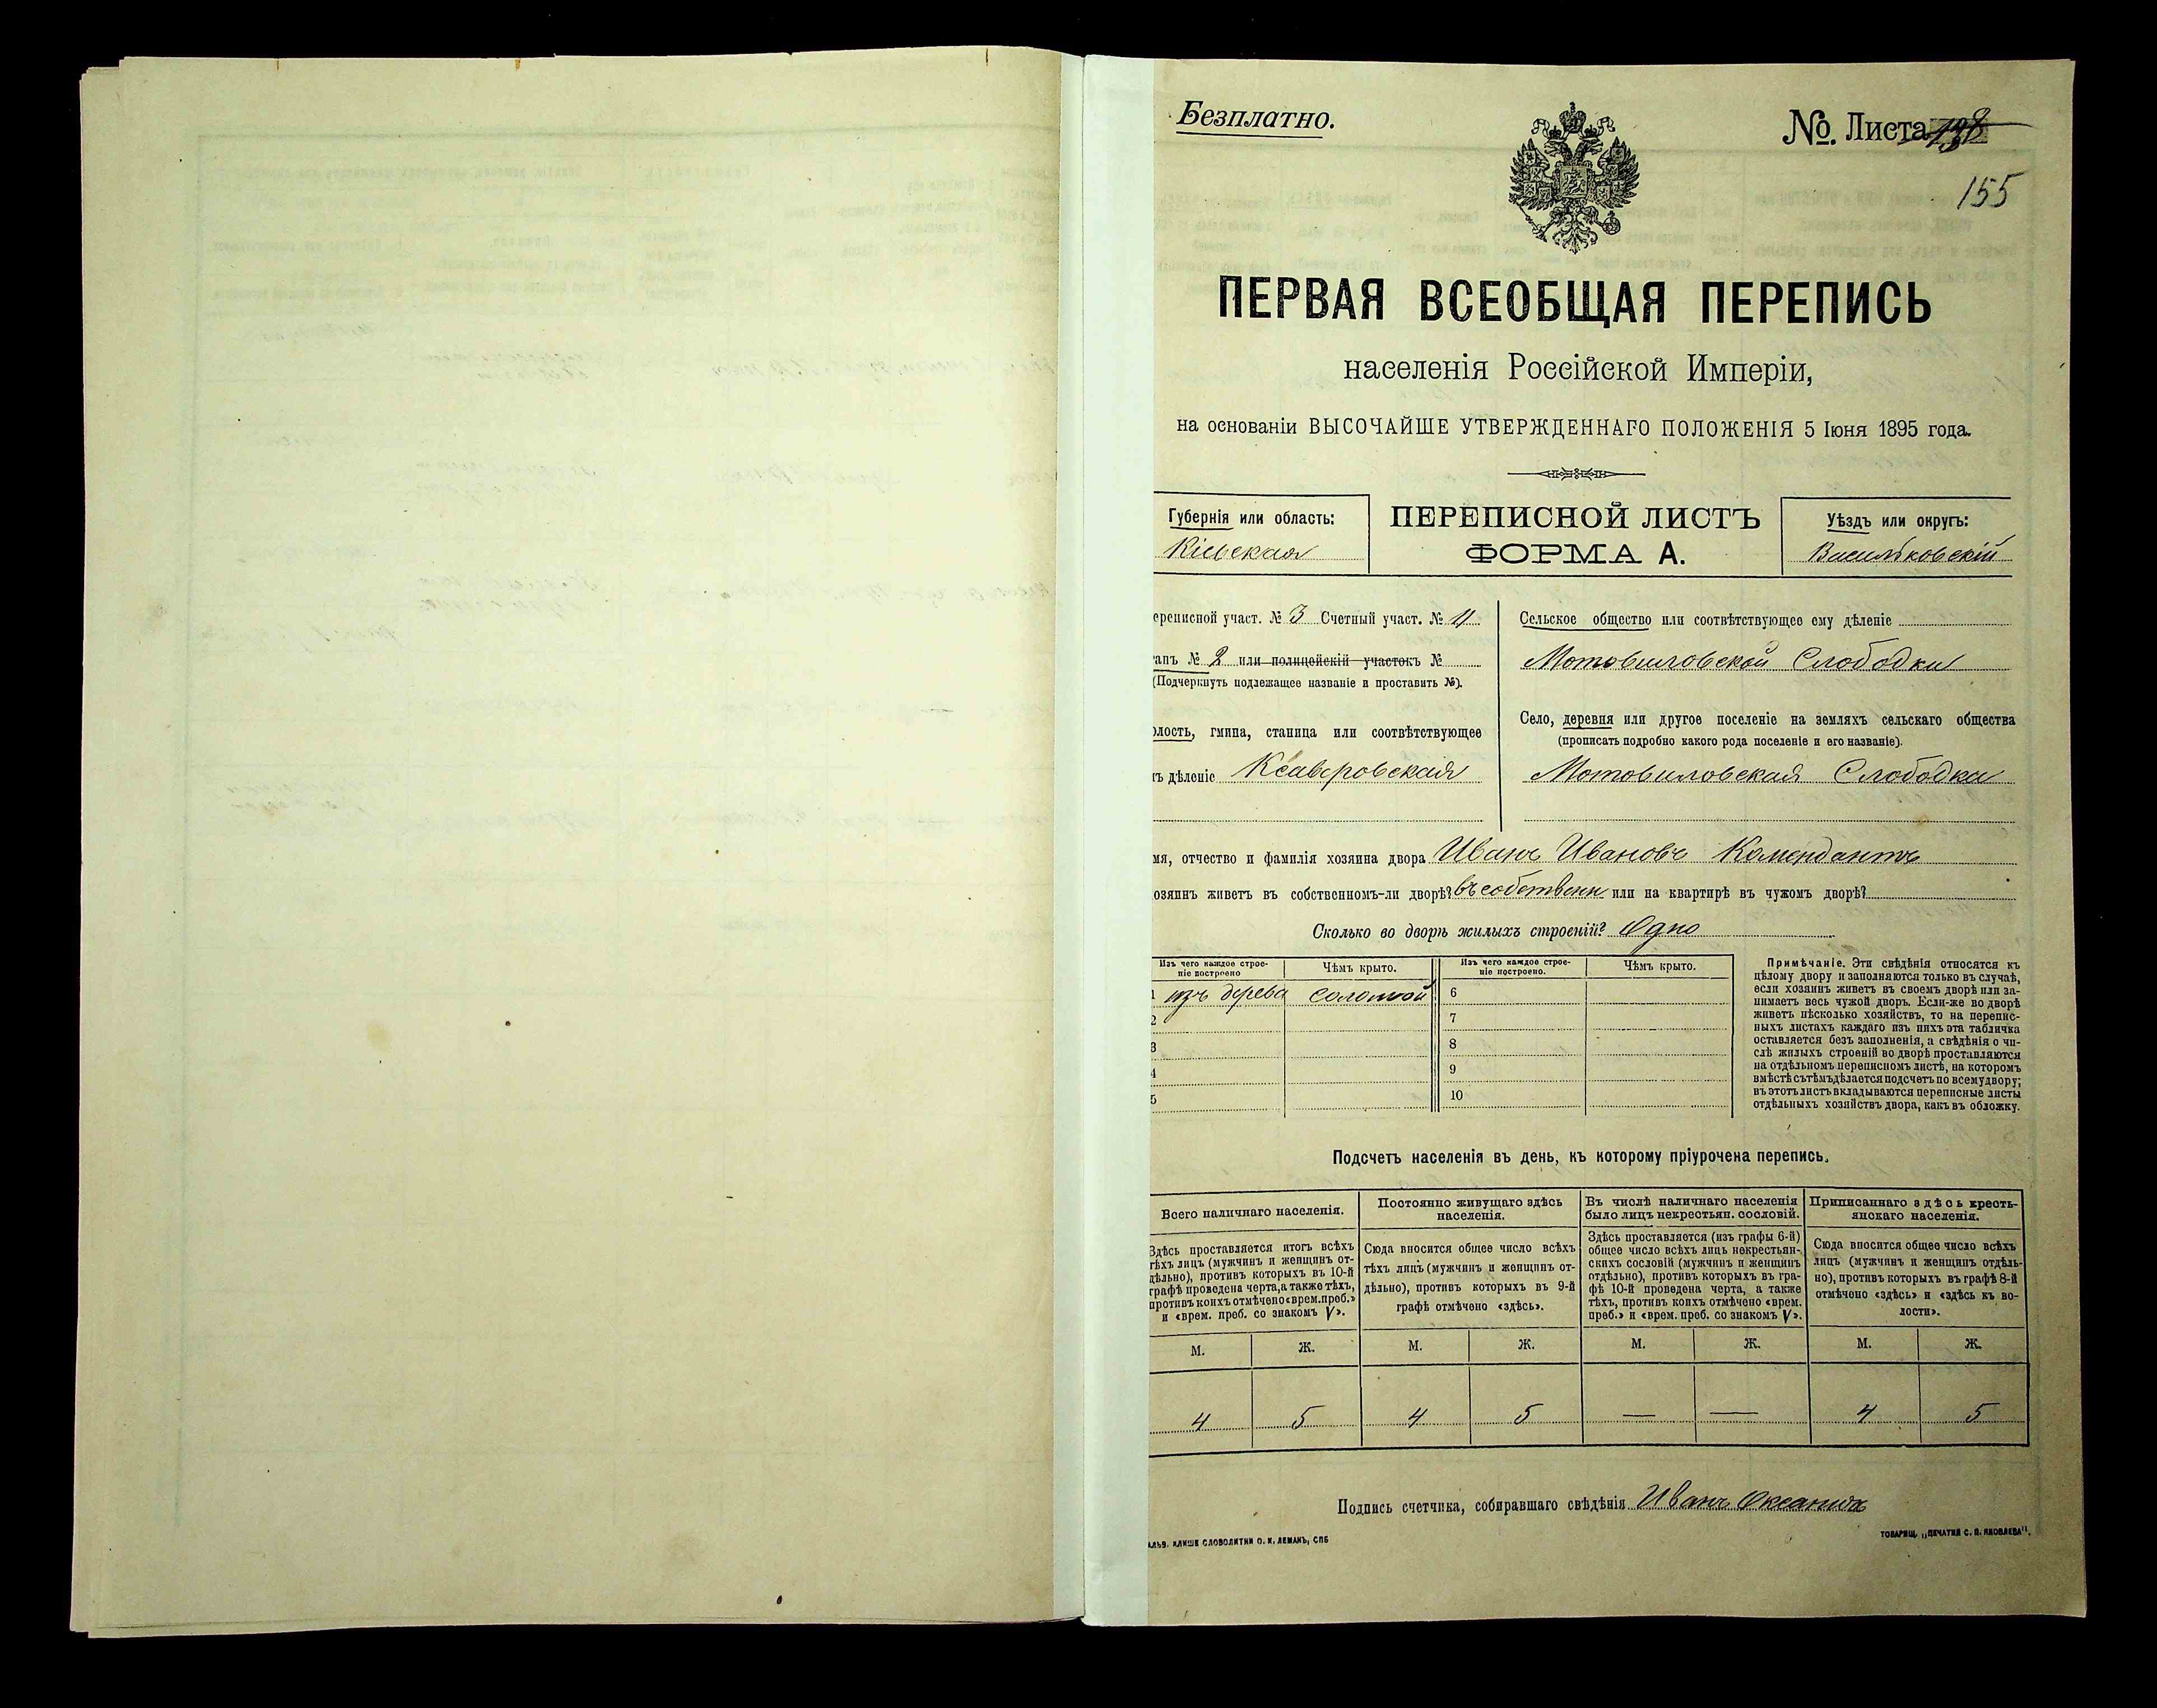 Безплатно.
№. Листа 138
155
ПЕРВАЯ ВСЕОБЩАЯ ПЕРЕПИСЬ
населенія Россійской Имперіи,
на основаніи ВЫСОЧАЙШЕ УТВЕРЖДЕННАГО ПОЛОЖЕНІЯ 5 Іюня 1895 года.
Губернія или область:
Кіевская
ПЕРЕПИСНОЙ ЛИСТЪ
ФОРМА А.
Уѣздъ или округъ:
Васильковскій
ереписной участ. № 3 Счетный участ. № 11
танъ № 2 или полицейскій участокъ №
(Подчеркнуть подлежащее названіе и проставить №).
олость, гмина, станица или соотвѣтствующее
ъ дѣленіе Ксаверовская
Сельское общество или соотвѣтствующее ему дѣленіе
Мотовиловской Слободки
Село, деревня или другое поселеніе на земляхъ сельскаго общества
(прописать подробно какого рода поселеніе и его названіе).
Мотовиловская Слободка
мя, отчество и фамилія хозяина двора Иванъ Ивановъ Комендантъ
озяинъ живетъ въ собственномъ-ли дворѣ? въ собственн или на квартирѣ въ чужомъ дворѣ?
Сколько во дворѣ жилыхъ строеній? Одно
Изъ чего каждое строе-
ніе построено
Чѣмъ крыто.
Изъ чего каждое строе-
ніе построено.
Чѣмъ крыто.
1 изъ дерева соломой 6
2 7
3 8
4 9
5 10
Примѣчаніе. Эти свѣдѣнія относятся къ
цѣлому двору и заполняются только въ случаѣ,
если хозяинъ живетъ въ своемъ дворѣ или за-
нимаетъ весь чужой дворъ. Если-же во дворѣ
живетъ нѣсколько хозяйствъ, то на перепис-
ныхъ листахъ каждаго изъ нихъ эта табличка
оставляется безъ заполненія, а свѣдѣнія о чи-
слѣ жилыхъ строеній во дворѣ проставляются
на отдѣльномъ переписномъ листѣ, на которомъ
вмѣстѣ съ тѣмъ дѣлается подсчетъ по всему двору;
въ этотъ листъ вкладываются переписные листы
отдѣльныхъ хозяйствъ двора, какъ въ обложку.
Подсчетъ населенія въ день, къ которому пріурочена перепись.
Всего наличнаго населенія.
Здѣсь проставляется итогъ всѣхъ
тѣхъ лицъ (мужчинъ и женщинъ от-
дѣльно), противъ которыхъ въ 10-й
графѣ проведена черта, а также тѣхъ,
противъ коихъ отмѣчено «врем. преб.»
и «врем. преб. со знакомъ V».
Постоянно живущаго здѣсь
населенія.
Сюда вносится общее число всѣхъ
тѣхъ лицъ (мужчинъ и женщинъ от-
дѣльно), противъ которыхъ въ 9-й
графѣ отмѣчено «здѣсь».
Въ числѣ наличнаго населенія
было лицъ некрестьян. сословій.
Здѣсь проставляется (изъ графы 6-й)
общее число всѣхъ лицъ некрестьян-
скихъ сословій (мужчинъ и женщинъ
отдѣльно), противъ которыхъ въ гра-
фѣ 10-й проведена черта, а также
тѣхъ, противъ коихъ отмѣчено «врем.
преб.» и «врем. преб. со знакомъ V».
Приписаннаго здѣсь кресть-
янскаго населенія.
Сюда вносится общее число всѣхъ
лицъ (мужчинъ и женщинъ отдѣль-
но), противъ которыхъ въ графѣ 8-й
отмѣчено «здѣсь» и «здѣсь къ во-
лости».
М. Ж. М. Ж. М. Ж. М. Ж.
4 5 4 5 — — 4 5
Подпись счетчика, собиравшаго свѣдѣнія Иванъ
АЛЬВ. КЛИШЕ СЛОВОЛИТНИ О. И. ЛЕМАНЪ, СПБ
ТОВАРИЩ. „ПЕЧАТНЯ С. П. ЯКОВЛЕВА“.